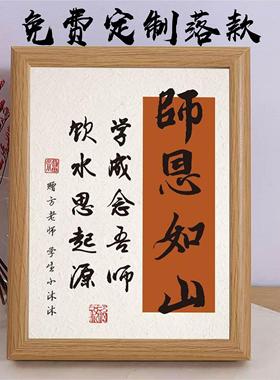 免费定制落款
師恩如山
学成念吾师
饮水思起源
赠方老师 学生小沐沐